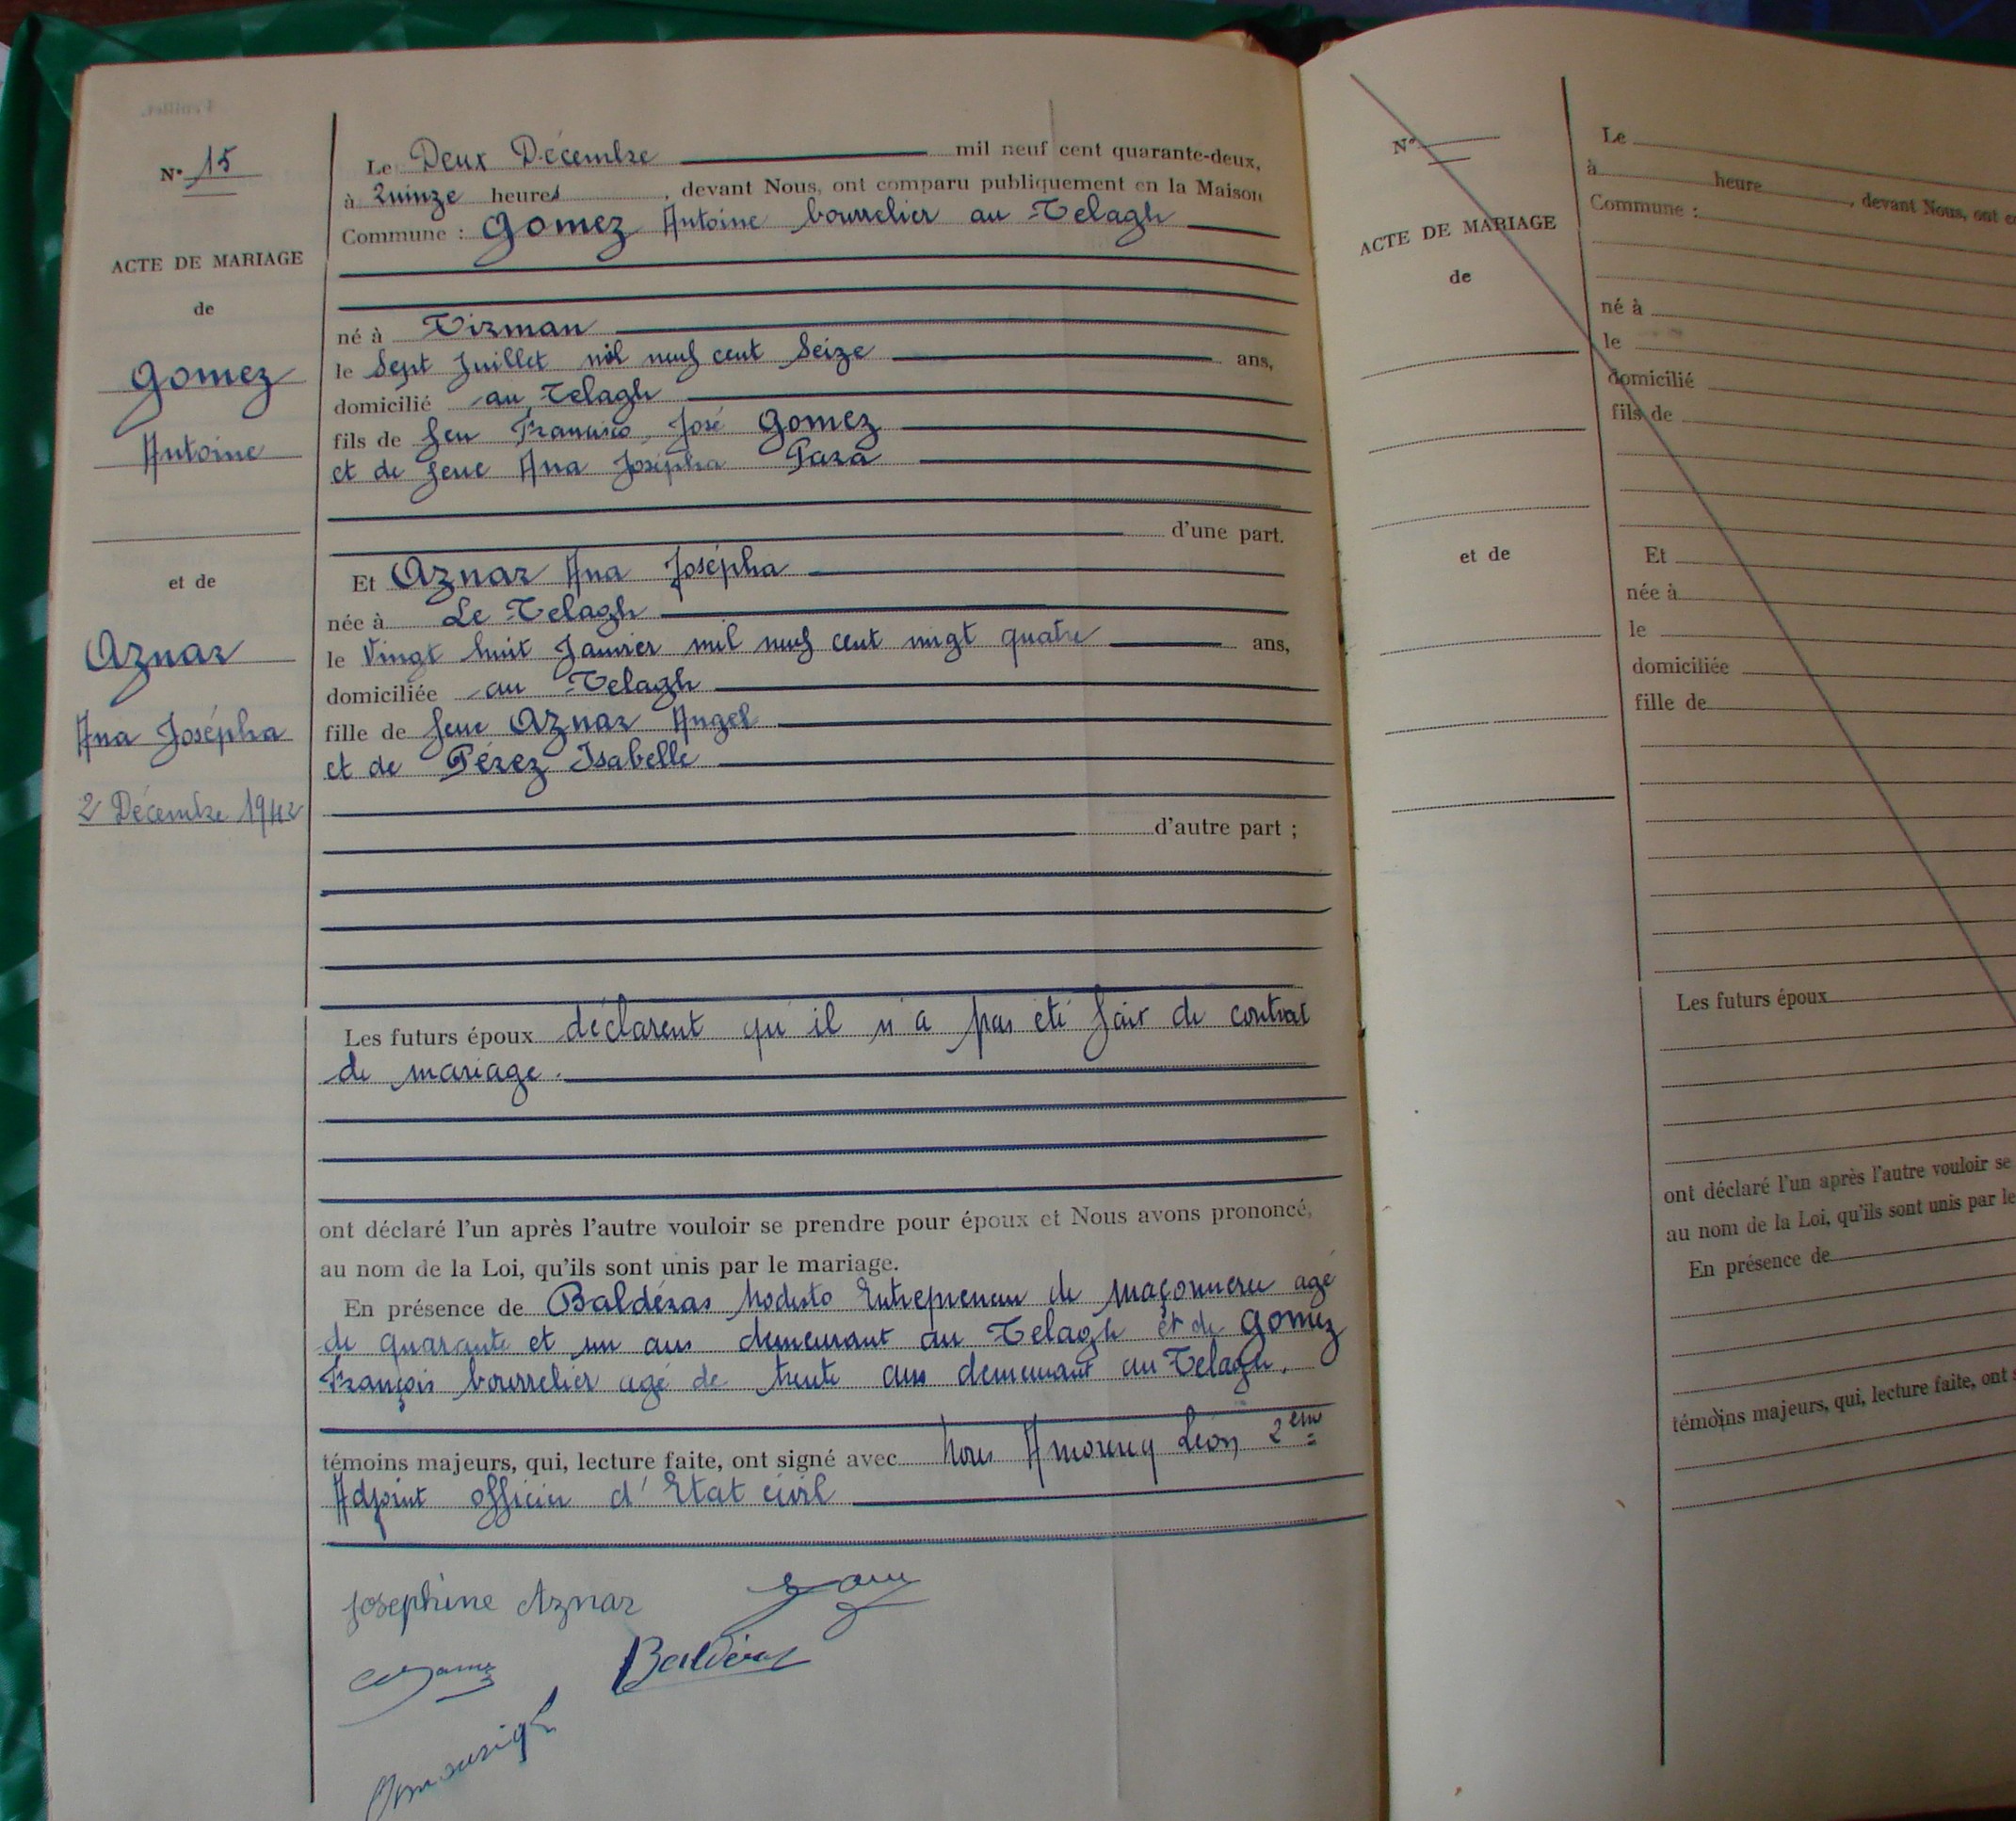 N° 15
ACTE DE MARIAGE
de
Gomez
Antoine
et de
Aznar
Ana Josépha
2 Décembre 1942
Le Deux Décembre mil neuf cent quarante-deux,
à Quinze heures, devant Nous, ont comparu publiquement en la Maison
Commune : Gomez Antoine bourrelier au Telagh
né à Tirman
le Sept Juillet mil neuf cent Seize ans,
domicilié au Telagh
fils de feu Francisco José Gomez
et de feue Ana Josépha Para
d'une part.
Et Aznar Ana Josépha
née à Le Telagh
le Vingt huit Janvier mil neuf cent vingt quatre ans,
domiciliée au Telagh
fille de feue Aznar Angel
et de Pérez Isabelle
d'autre part ;
Les futurs époux déclarent qu'il n'a pas été fait de contrat
de mariage.
ont déclaré l'un après l'autre vouloir se prendre pour époux et Nous avons prononcé,
au nom de la Loi, qu'ils sont unis par le mariage.
En présence de Baldéras Modesto Entrepreneur de maçonnerie agé
de quarante et un ans demeurant au Telagh et de Gomez
François bourrelier agé de trente ans demeurant au Telagh.
témoins majeurs, qui, lecture faite, ont signé avec Nous Léon, 2eme
Adjoint officier d'Etat civil
Josephine Aznar
Baldéras
N°
ACTE DE MARIAGE
de
et de
Le
à heure , devant Nous, ont
Commune :
né à
le
domicilié
fils de
Et
née à
le
domiciliée
fille de
Les futurs époux
ont déclaré l'un après l'autre vouloir se
au nom de la Loi, qu'ils sont unis par le
En présence de
témoins majeurs, qui, lecture faite, ont